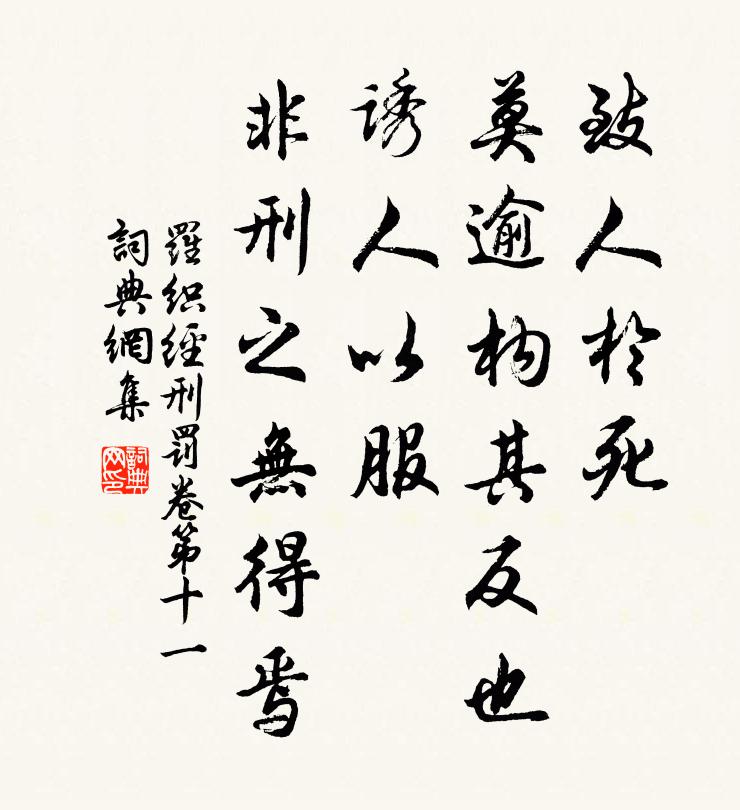 致人於死
莫逾构其反也
诱人以服
非刑之無得焉
羅织經刑罰卷第十一
詞典網集
詞典
网印